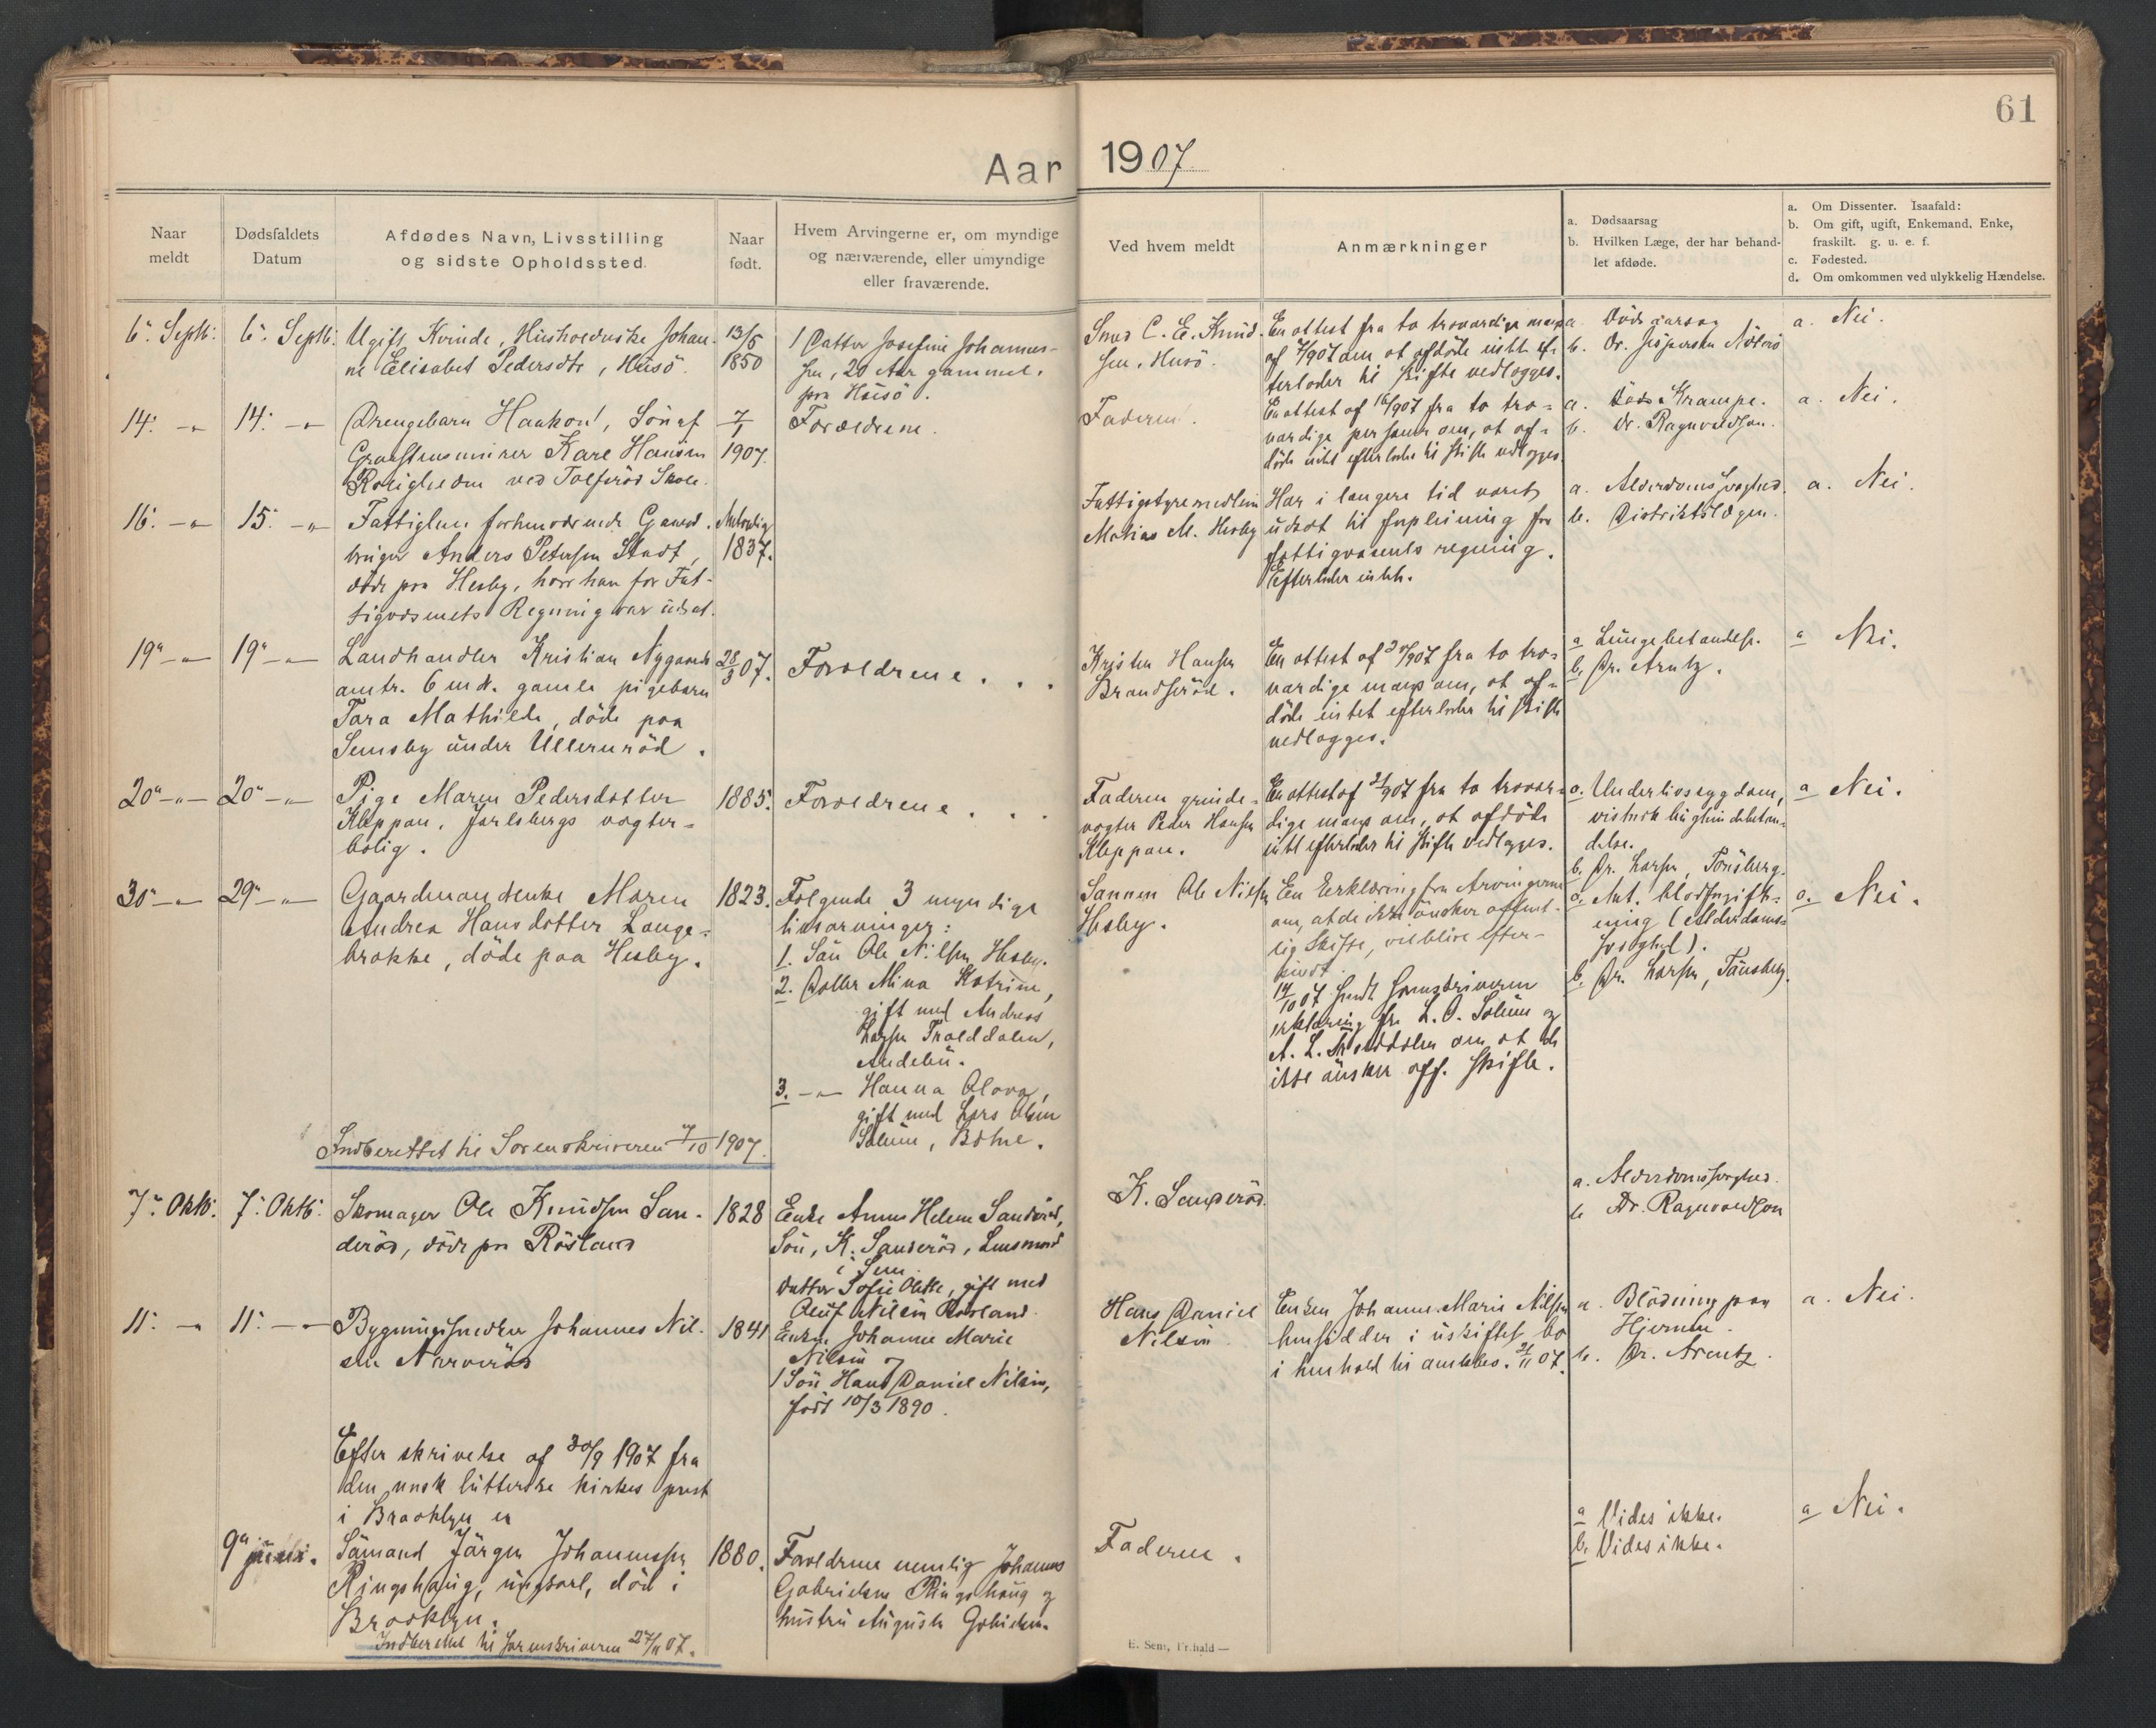 61
Aar 1907
Naar
meldt
Dødsfaldets
Datum
Afdødes Navn, Livsstilling
og sidste Opholdssted.
Naar
født.
Hvem Arvingerne er, om myndige
og nærværende, eller umyndige
eller fraværende.
Ved hvem meldt
Anmærkninger
a. Dødsaarsag
b. Hvilken Læge, der har behand-
let afdøde.
a. Om Dissenter. Isaafald:
b. Om gift, ugift, Enkemand, Enke,
fraskilt. g. u. e. f.
c. Fødested.
d. Om omkommen ved ulykkelig Hændelse.
6. Septb.
6. Septb.
Ugift Kvinde, Husholderske Johan-
ne Elisabet Pedersdtr, Husö.
13/5
1850
1 Datter Josefine Johannes-
sen, 20 Aar gammel,
paa Husö.
Smed C. E. Knud-
sen, Husö.
En attest fra to troværdige mænd
af 7/907 om at afdöde intet ef-
terlader til skifte vedlægges.
a. Dödsaarsag
b. Dr.
a. Nei.
14. -"-
14. -"-
Drengebarn Haakon, Sön af
Graastensminerer Kare Hansen
Roligheden ved Tolfsröd Skole.
7/1
1907.
Forældrene.
Faderen.
En attest af 16/907 fra to tro-
værdige personer om, at af-
döde intet efterlader til skifte vedlægges.
a. Krampe.
b. Dr. Ragnvaldsen.
a. Nei.
16. -"-
15. -"-
Fattiglem forhenværende Gaard-
bruger Anders Petersen Stadt,
döde paa Hesby, hvor han for Fat-
tigvæsenets Regning var udsat.
Antagelig
1837.
Fattigstyremedlem
Matias M. Hesby
Har i længere tid været
udsat til forpleining for
fattigvæsenets regning.
Efterlader intet.
a. Alderdomssvaghed.
b. Distriktslægen.
a. Nei.
19" -"-
19" -"-
Landhandler Kristian Nygaards
omtr. 6 mdr. gamle pigebarn
Tora Mathilde, döde paa
Semsby under Ullernröd.
28/3 07.
Forældrene . . .
Kristen Hansen
Brandsröd.
En attest af 20/907 fra to tro-
værdige mænd om, at af-
döde intet efterlader til skifte
vedlægges.
a Lungebetændelse.
b. Dr. Arntz.
a Nei.
20" -"-
20" -"-
Pige Maren Pedersdatter
Kleppan, Jarlsbergs vogter-
bolig.
1885.
Forældrene . . .
Faderen grinde-
vogter Peder Hansen
Kleppan.
En attest af 21/907 fra to trovær-
dige mænd om, at afdöde
intet efterlader til skifte vedlægges.
a. Underlivssygdom,

b. Dr. Larsen, Tönsberg.
a Nei.
30" -"-
29" -"-
Gaardmandsenke Maren
Andrea Hansdatter Lange-
brække, döde paa Hesby.
1823.
Følgende 3 myndige
livsarvinger:
1. Sön Ole Nilsen Hesby.
2. Datter Mina Katrine,
gift med Andreas
Larsen Trolldalen,
Andebu.
3. -"- Hanna Olava,
gift med Lars Olsen
Solum, Botne.
Sønnen Ole Nilsen
Hesby.
En Erklæring fra Arvingerne
om, at de ikke önsker offent-
lig Skifte, vil blive efter-
sendt
14/10 07 sendt Sorenskriveren
erklæring fra L. O. Solum og
A. L. Trolddalen om at de
ikke önsker off. skifte.
a. Ant. blodforgift-
ning (Alderdoms-
svaghed).
b. Dr. Larsen, Tönsberg.
a. Nei.
Indberettet til Sorenskriveren 7/10 1907.
7. Oktb.
7. Oktb.
Skomager Ole Knudsen San-
deröd, döde paa Rösland
1828
Enke Anne Helene Sanderöd,
Sön, K. Sanderöd, Lensmand
i Sem
Datter Sofie Olette, gift med
Oluf Nilsen Rosland.
K. Sanderöd.
a. Alderdomssvaghed.
b Dr. Ragnvaldsen
11. -"-
11. -"-
Bygningssnedker Johannes Nil-
sen Narveröd
1841
Enken Johanne Marie
Nilsen og
1 Sön Hans Daniel Nilsen,
född 10/3 1890.
Hans Daniel
Nilsen
Enken Johanne Marie Nilsen
hensidder i uskiftet bo
i henhold til 21/11 07.
a. Blödning paa
Hjernen.
b. Dr. Arentz.
a. Nei.
Efter skrivelse af 30/9 1907 fra
den norsk lutterske kirkes prest
i Brooklyn er
9" juli.
Sömand Jörgen Johannessen
Ringshaug, ungkarl, död i
Brooklyn.
1880.
Forældrene nemlig Johannes
Gabrielsen Ringshaug og
hustru Augusta Gabrielsen.
Faderen.
a Vides ikke.
b. Vides ikke.
a Nei.
Indberettet til Sorenskriveren 27/11 07.
E. Sem, Fr.hald —